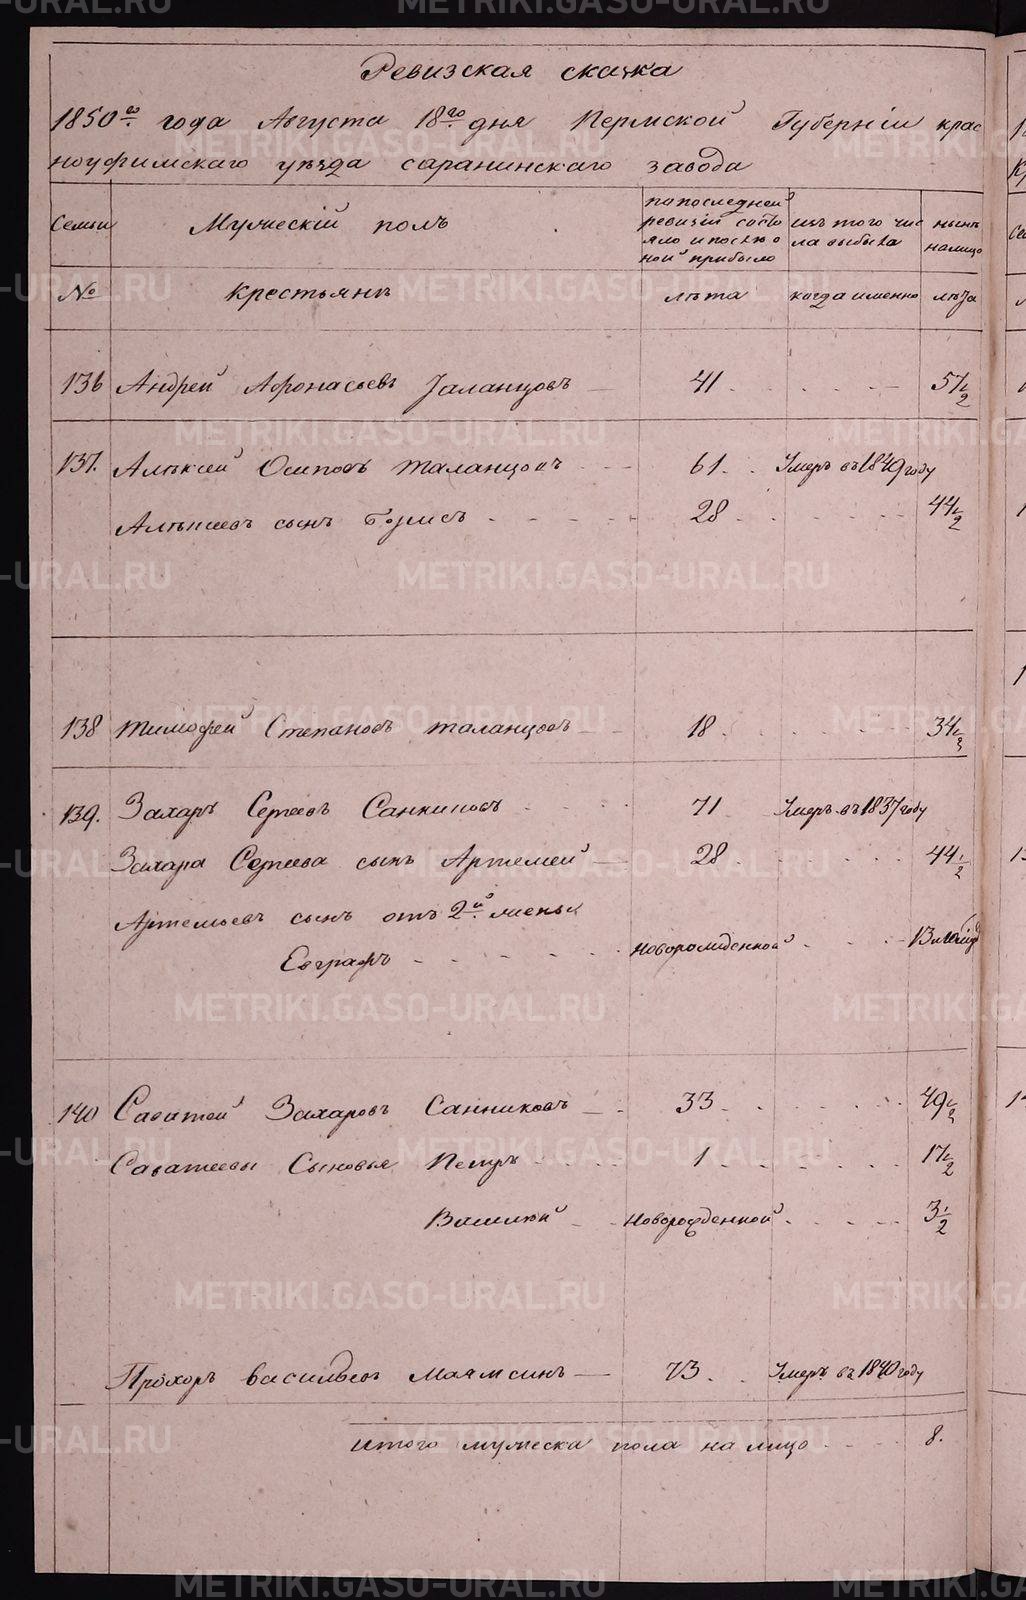 Ревизская сказка
1850го года Августа 18го дня Пермской Губерніи крас
ноуфимскаго уѣзда саранинскаго завода
Семьи
Мужескій полъ
попоследней ревизіи состояло ипослѣ оной прибыло
изъ того числа выбыло
нынѣ налицо
№
крестьянъ
лѣта
когда именно
лѣта
136 Андрей Афонасьевъ Таланцовъ 41 57 1/2
137. Алѣксей Осиповъ таланцовъ 61 Умеръ въ 1849 году
Алѣксеевъ сынъ Борисъ 28 44 1/2
138 тимофей Степановъ таланцовъ 18 34 1/2
139. Захаръ Сергеевъ Санниковъ 71 Умеръ въ 1837 году
Захара Сергеева сынъ Артемей 28 44 1/2
Артемьевъ сынъ отъ 2й жены
Евграфъ Новорожденной 13
140 Саватей Захаровъ Санниковъ 33 49 1/2
Саватеевы Сыновья Петръ 1 17 1/2
Василій Новорожденной 3 1/2
Прохоръ васильевъ 73 Умеръ въ 1840 году
итого мужеска пола на лицо 8.
METRIKI.GASO-URAL.RU